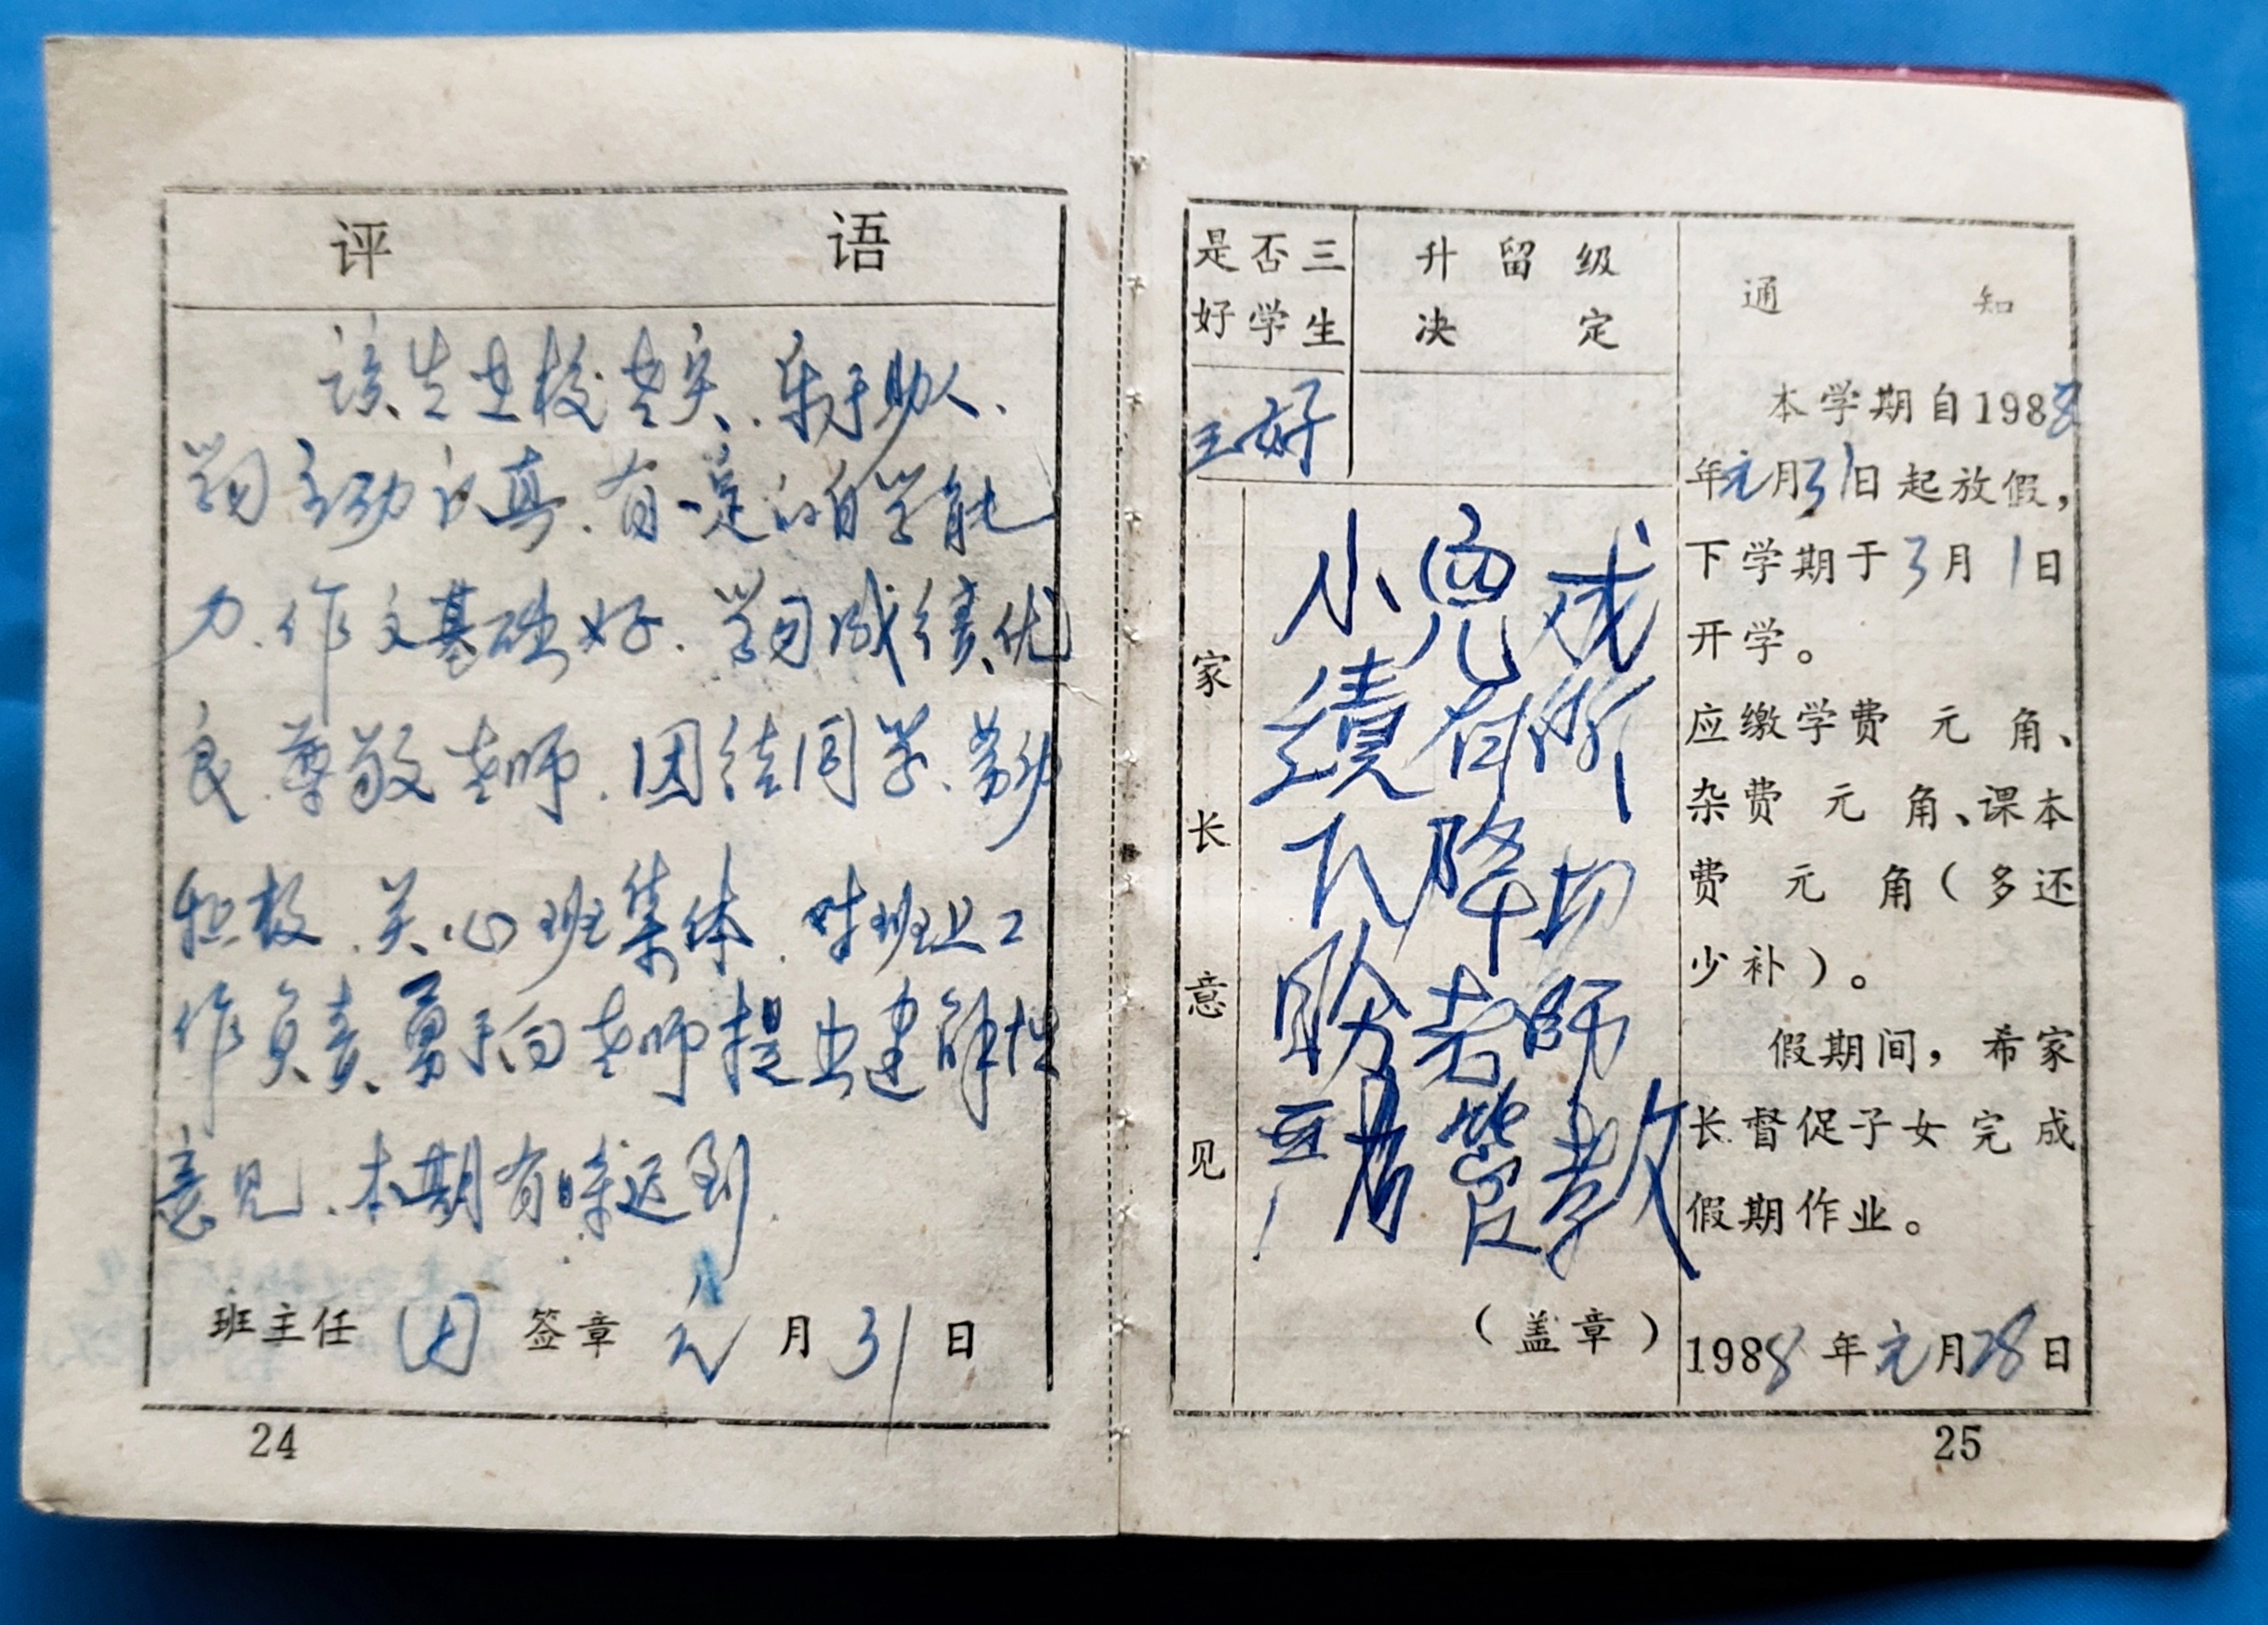 评 语
该生在校老实、乐于助人、
学习主动认真、有一定的自学能
力、作文基础好、学习成绩优
良、尊敬老师、团结同学、劳动
积极、关心班集体、对班上工
作负责、勇于向老师提出建解性
意见、本期有时迟到.
班主任 签章 元月31日
24
是否三
好学生
三好
升留级
决定
家长意见
小兒成
绩有所
下降切
盼老师
严君管教
!
(盖章)
通 知
本学期自1988
年元月31日起放假,
下学期于3月1日
开学。
应缴学费 元 角、
杂费 元 角、课本
费 元 角(多还
少补)。
假期间,希家
长督促子女完成
假期作业。
1988年元月28日
25